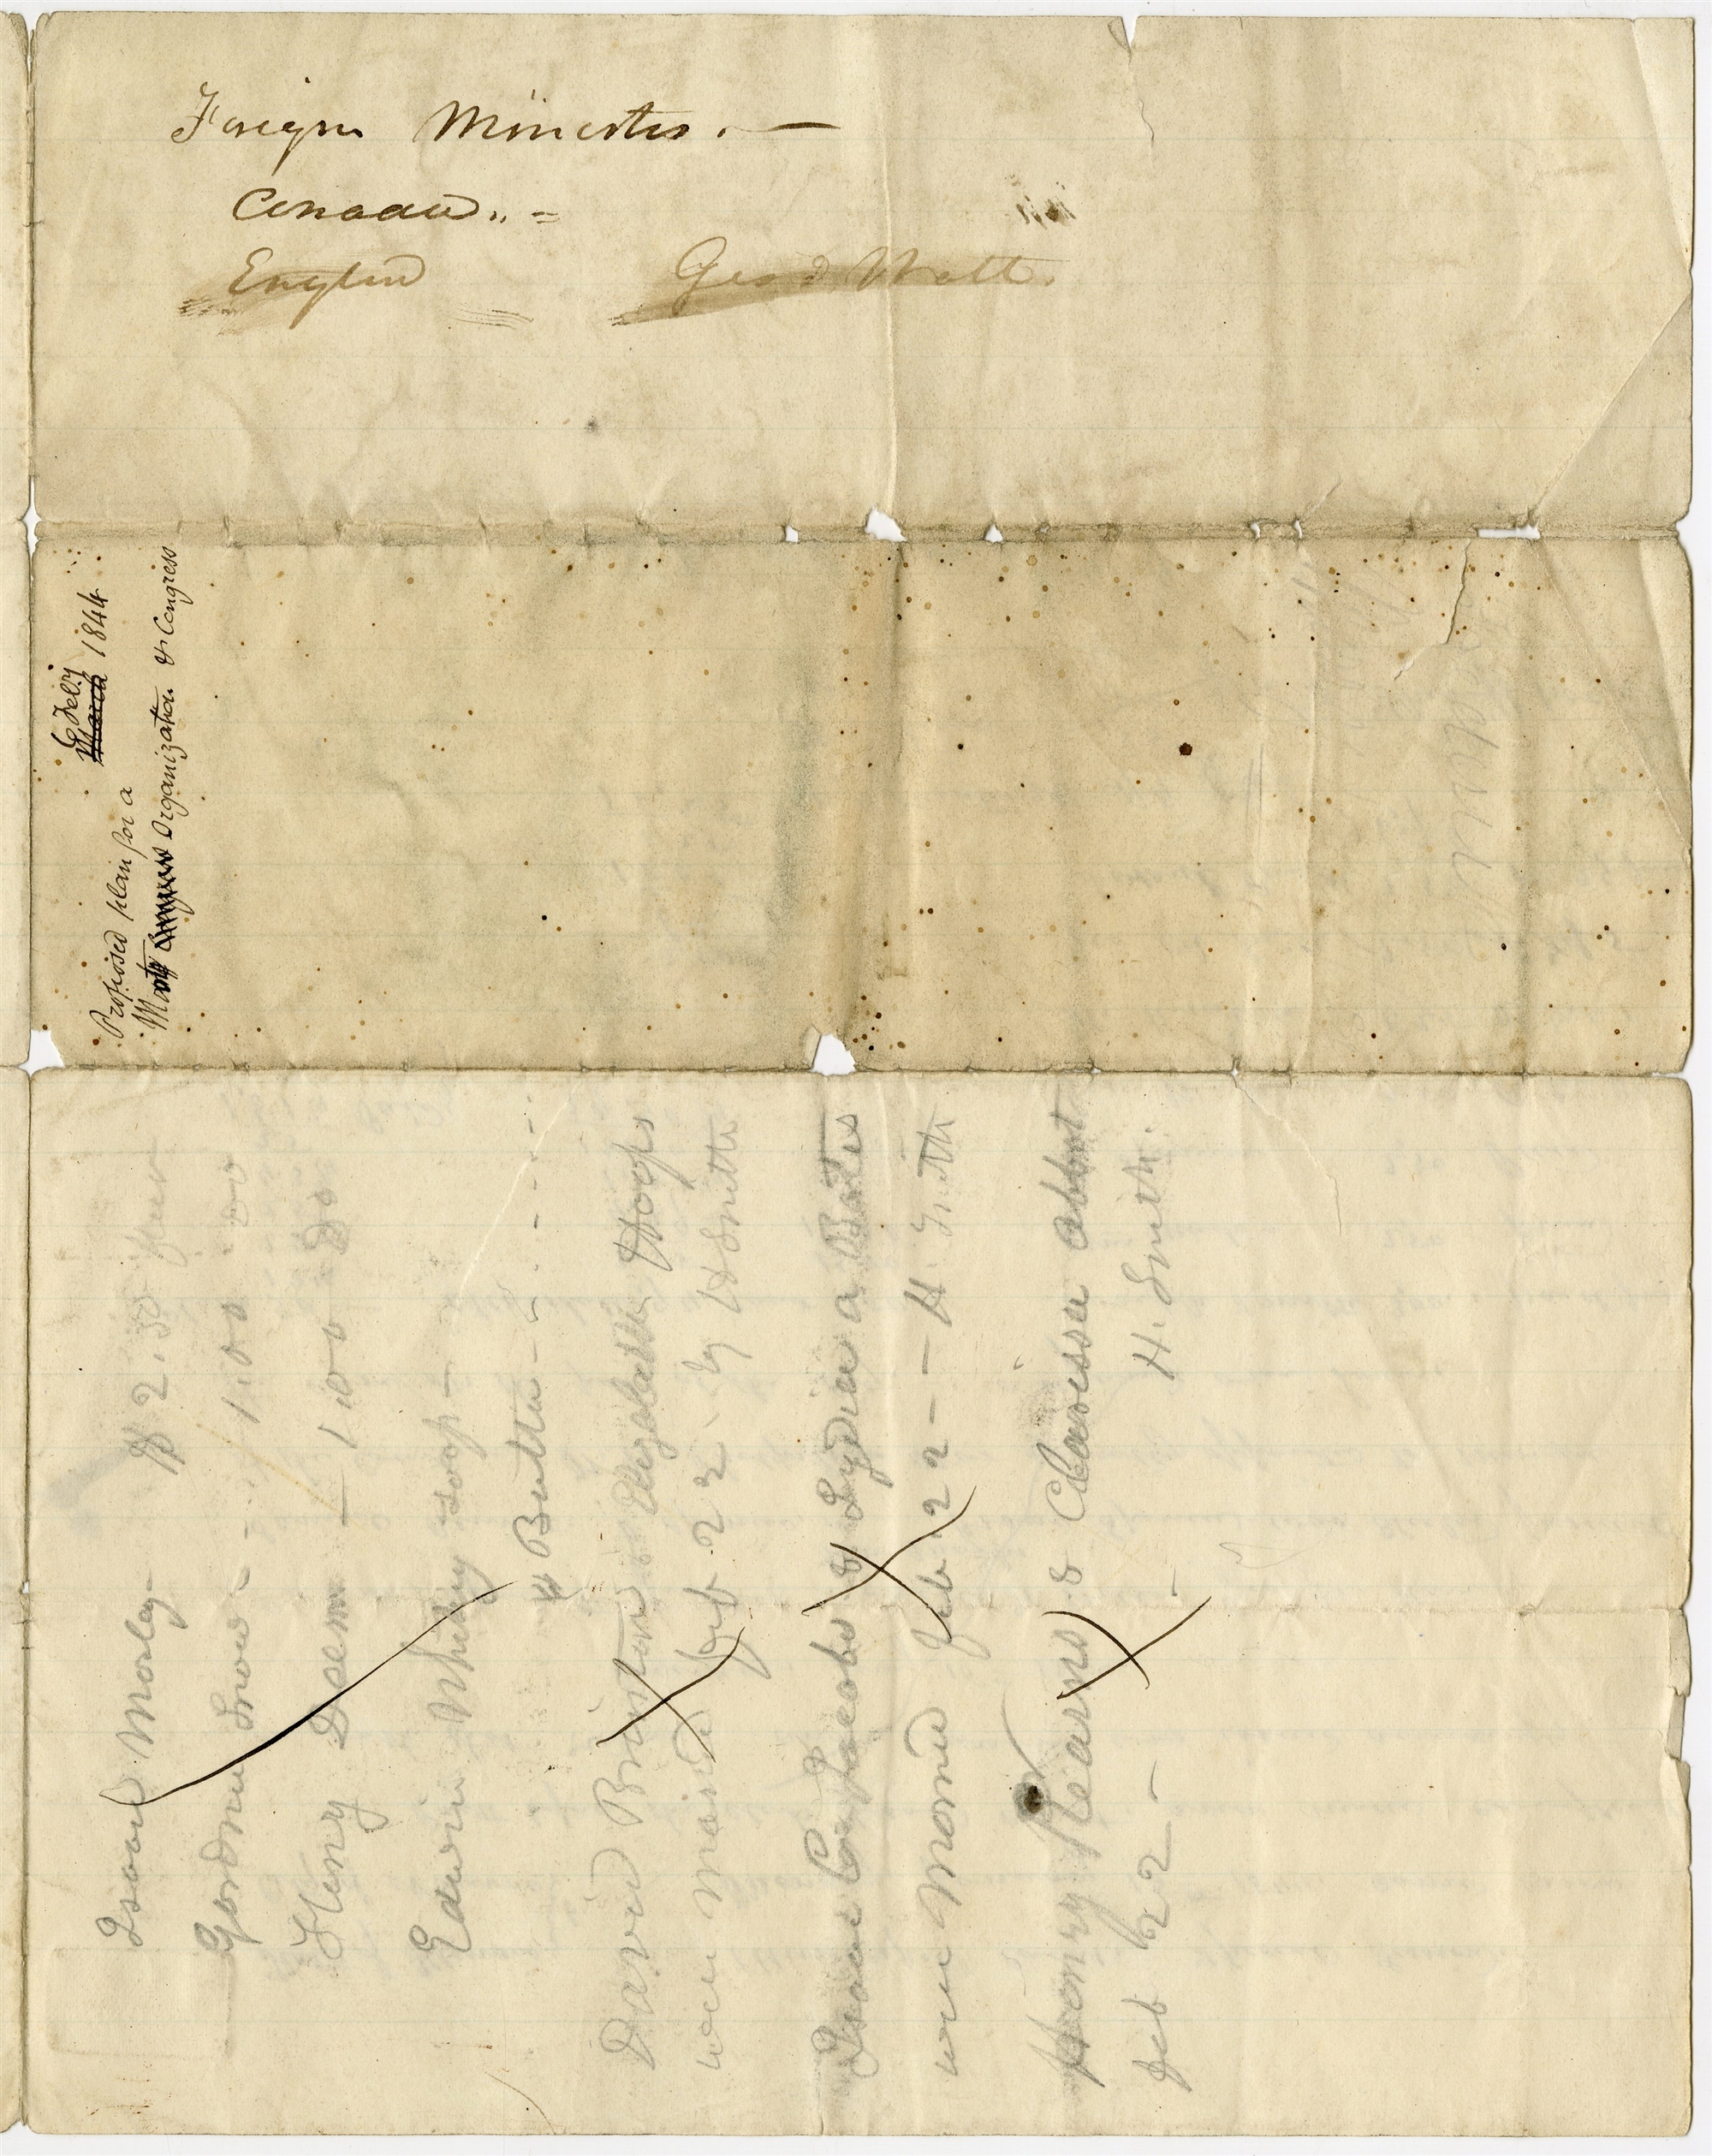 Foreign Ministers. —
Canada " =
England Geo D. Watt.
Feb.y
March 1844
Proposed plan for a
Organization & Congress
Isaac Morley - $ 2.50
Gardner Snow - - 1.00 do
Henry Deem — 1 00 do
Edwin Whiting Soop -
" Butter - - - - - -
David Brinton Elizabeth Hoops
were married Feb 22 by H Smith
Isaac Jacobs & Lydia a Bates
were Married Feb 22 - - H. Smith
Henry Kearns & Clarissa abbot
Feb 22 - - H. Smith.